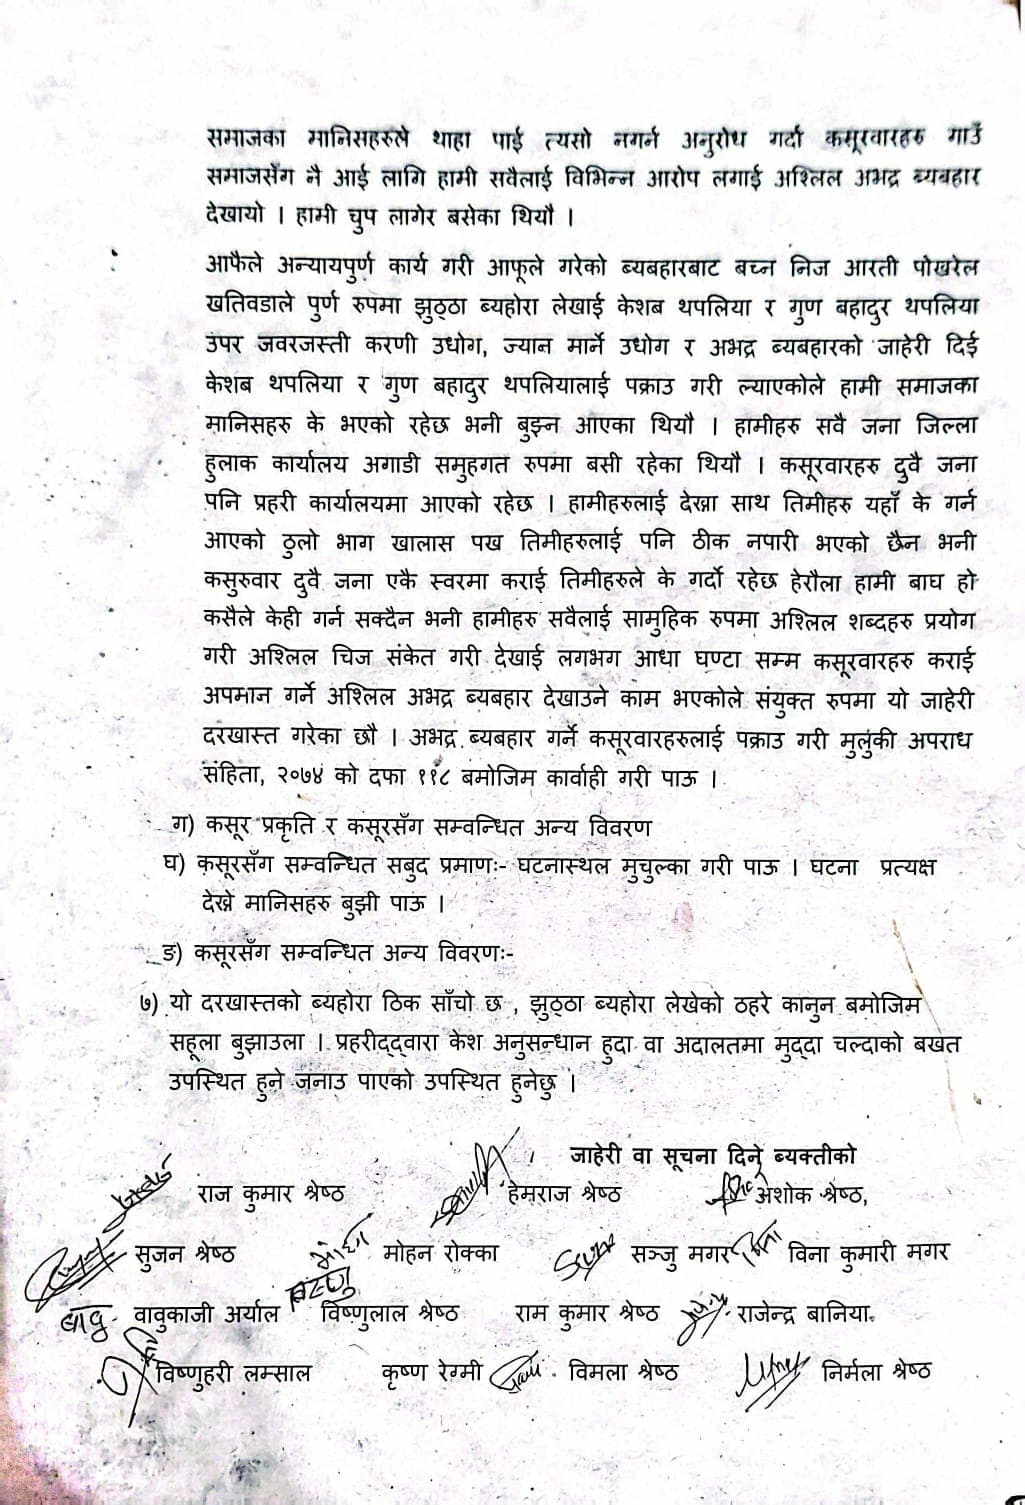 समाजका मानिसहरुले थाहा पाई त्यसो नगर्न अनुरोध गर्दा कसूरवारहरु गाउँ
समाजसँग नै आई लागि हामी सवैलाई विभिन्न आरोप लगाई अश्लिल अभद्र ब्यबहार
देखायो । हामी चुप लागेर बसेका थियौ ।
आफैले अन्यायपुर्ण कार्य गरी आफूले गरेको ब्यबहारबाट बच्न निज आरती पोखरेल
खतिवडाले पुर्ण रुपमा झुठ्ठा ब्यहोरा लेखाई केशब थपलिया र गुण बहादुर थपलिया
उपर जवरजस्ती करणी उधोग, ज्यान मार्ने उधोग र अभद्र ब्यबहारको जाहेरी दिई
केशब थपलिया र गुण बहादुर थपलियालाई पक्राउ गरी ल्याएकोले हामी समाजका
मानिसहरु के भएको रहेछ भनी बुझ्न आएका थियौ । हामीहरु सवै जना जिल्ला
हुलाक कार्यालय अगाडी समुहगत रुपमा बसी रहेका थियौ । कसूरवारहरु दुवै जना
पनि प्रहरी कार्यालयमा आएको रहेछ । हामीहरुलाई देख्ना साथ तिमीहरु यहाँ के गर्न
आएको ठुलो भाग खालास पख तिमीहरुलाई पनि ठीक नपारी भएको छैन भनी
कसुरुवार दुवै जना एकै स्वरमा कराई तिमीहरुले के गर्दो रहेछ हेरौला हामी बाघ हो
कसैले केही गर्न सक्दैन भनी हामीहरु सवैलाई सामुहिक रुपमा अश्लिल शब्दहरु प्रयोग
गरी अश्लिल चिज संकेत गरी देखाई लगभग आधा घण्टा सम्म कसूरवारहरु कराई
अपमान गर्ने अश्लिल अभद्र ब्यबहार देखाउने काम भएकोले संयुक्त रुपमा यो जाहेरी
दरखास्त गरेका छौ । अभद्र ब्यबहार गर्ने कसूरवारहरुलाई पक्राउ गरी मुलुकी अपराध
संहिता, २०७४ को दफा ११८ बमोजिम कार्वाही गरी पाऊ ।
ग) कसूर प्रकृति र कसूरसँग सम्वन्धित अन्य विवरण
घ) कसूरसँग सम्वन्धित सबुद प्रमाणः- घटनास्थल मुचुल्का गरी पाऊ । घटना प्रत्यक्ष
देख्ने मानिसहरु बुझी पाऊ ।
ङ) कसूरसँग सम्वन्धित अन्य विवरणः-
७) यो दरखास्तको ब्यहोरा ठिक साँचो छ , झुठ्ठा ब्यहोरा लेखेको ठहरे कानुन बमोजिम
सहूला बुझाउला । प्रहरीद्द्वारा केश अनुसन्धान हुदा वा अदालतमा मुद्दा चल्दाको बखत
उपस्थित हुने जनाउ पाएको उपस्थित हुनेछु ।
जाहेरी वा सूचना दिने ब्यक्तीको
राज कुमार श्रेष्ठ हेमराज श्रेष्ठ अशोक श्रेष्ठ,
सुजन श्रेष्ठ मोहन रोक्का सञ्जु मगर विना कुमारी मगर
बाबु वावुकाजी अर्याल विष्णुलाल श्रेष्ठ राम कुमार श्रेष्ठ राजेन्द्र बानिया
विष्णुहरी लम्साल कृष्ण रेग्मी विमला श्रेष्ठ निर्मला श्रेष्ठ